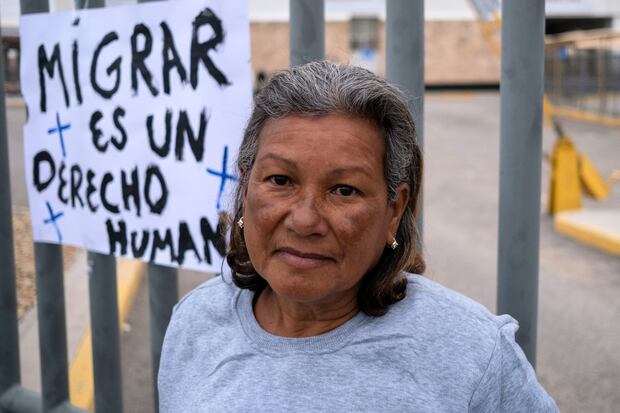 MIGRAR
ES UN
DERECHO
HUMAN